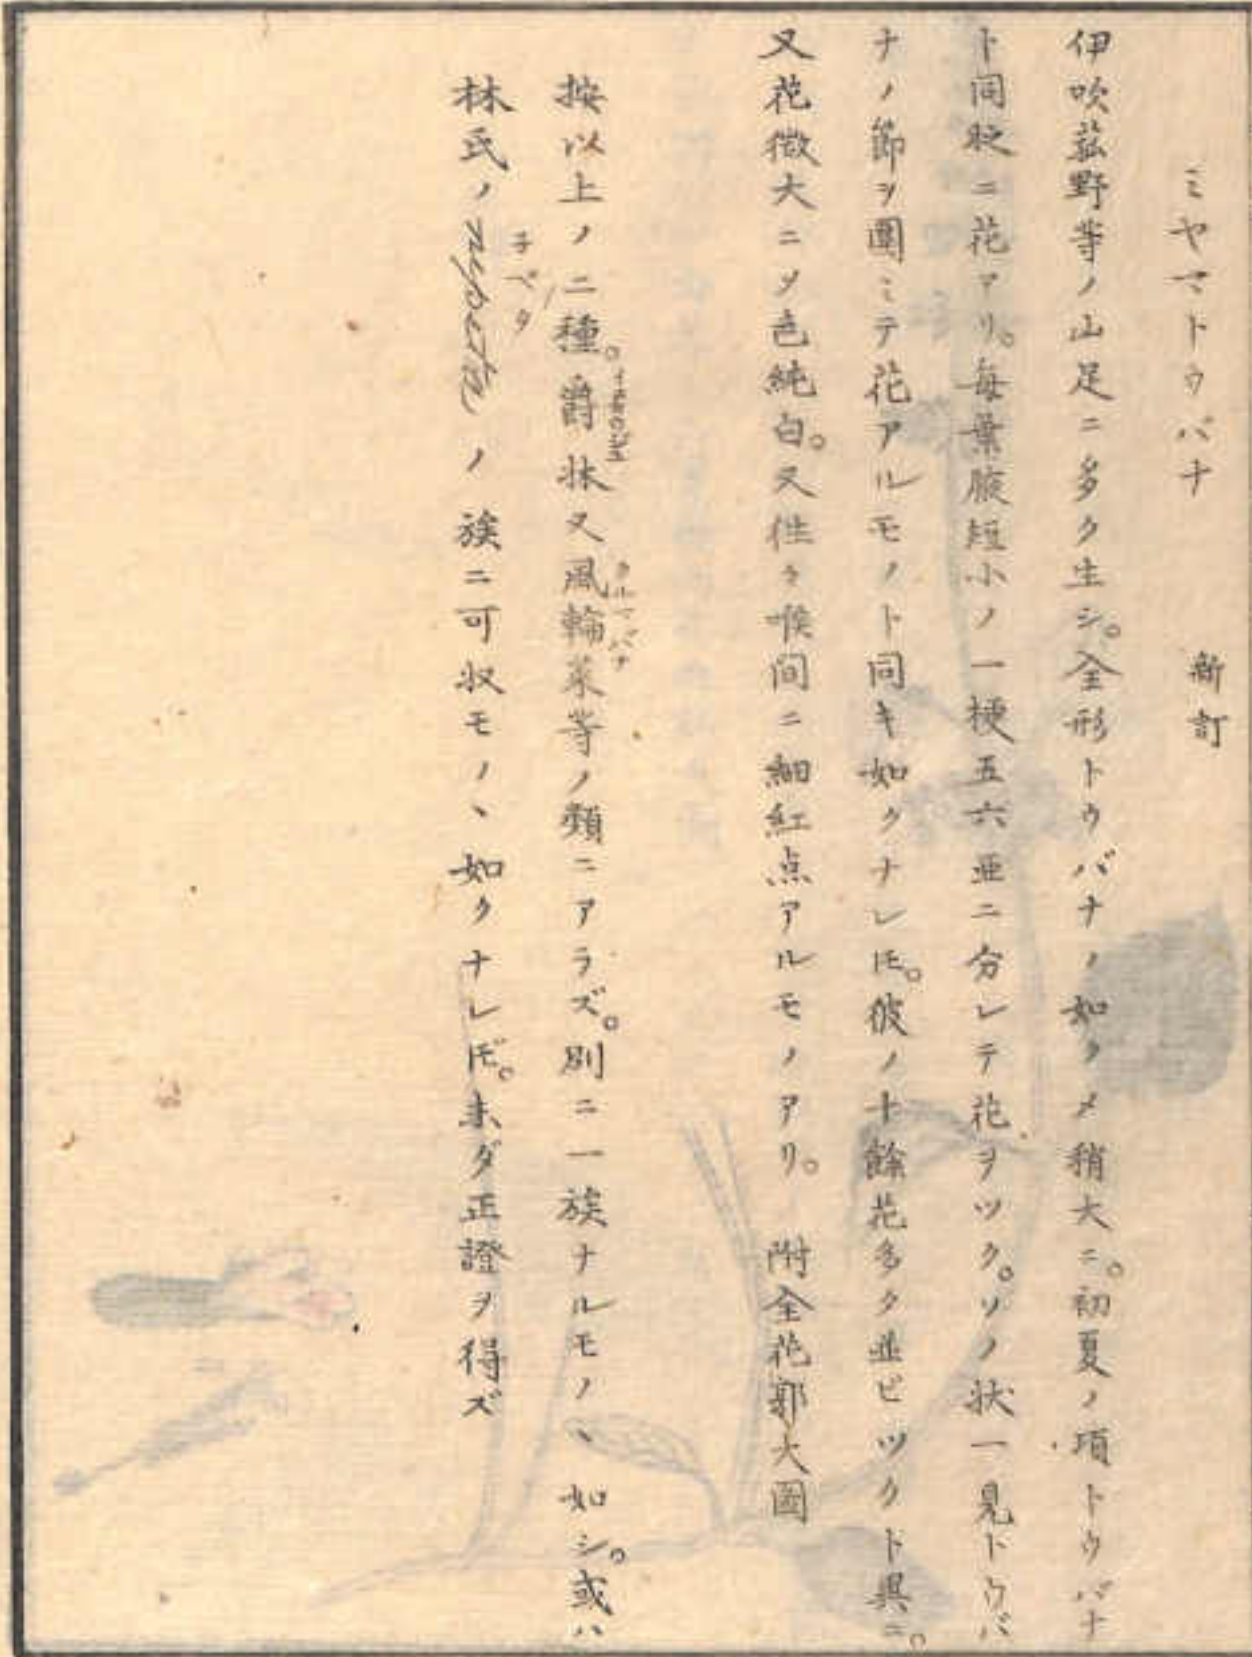 ミヤマトウバナ　新訂
伊吹菰野等ノ山足ニ多ク生シ。全形トウバナノ如クメ稍大ニ。初夏ノ項トウバナ
ト同時ニ花アリ。毎葉腋短小ノ一梗五六並ニ分レテ花ヲツク。ソノ状一見トウバ
ナノ節ヲ圍ミテ花アルモノト同キ如クナレ𪜈。彼ノ十餘花多ク並ビツクト異ニ。
又花微大ニヿ色純白。又往々喉間ニ細紅点アルモノアリ。　附全花郭大圖
按以上ノ二種。爵牀又風輪菜クルマバナ等ノ類ニアラズ。別ニ一族ナルモノヽ如シ。或ハ
林氏ノnepetaネペタノ族ニ可収モノヽ如クナレ𪜈。未ダ正證ヲ得ズ